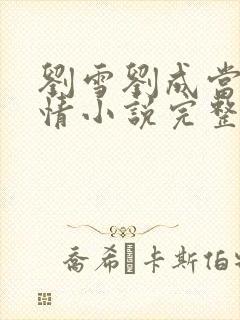 劉雪劉成當
情小說完整
喬希 卡斯伯